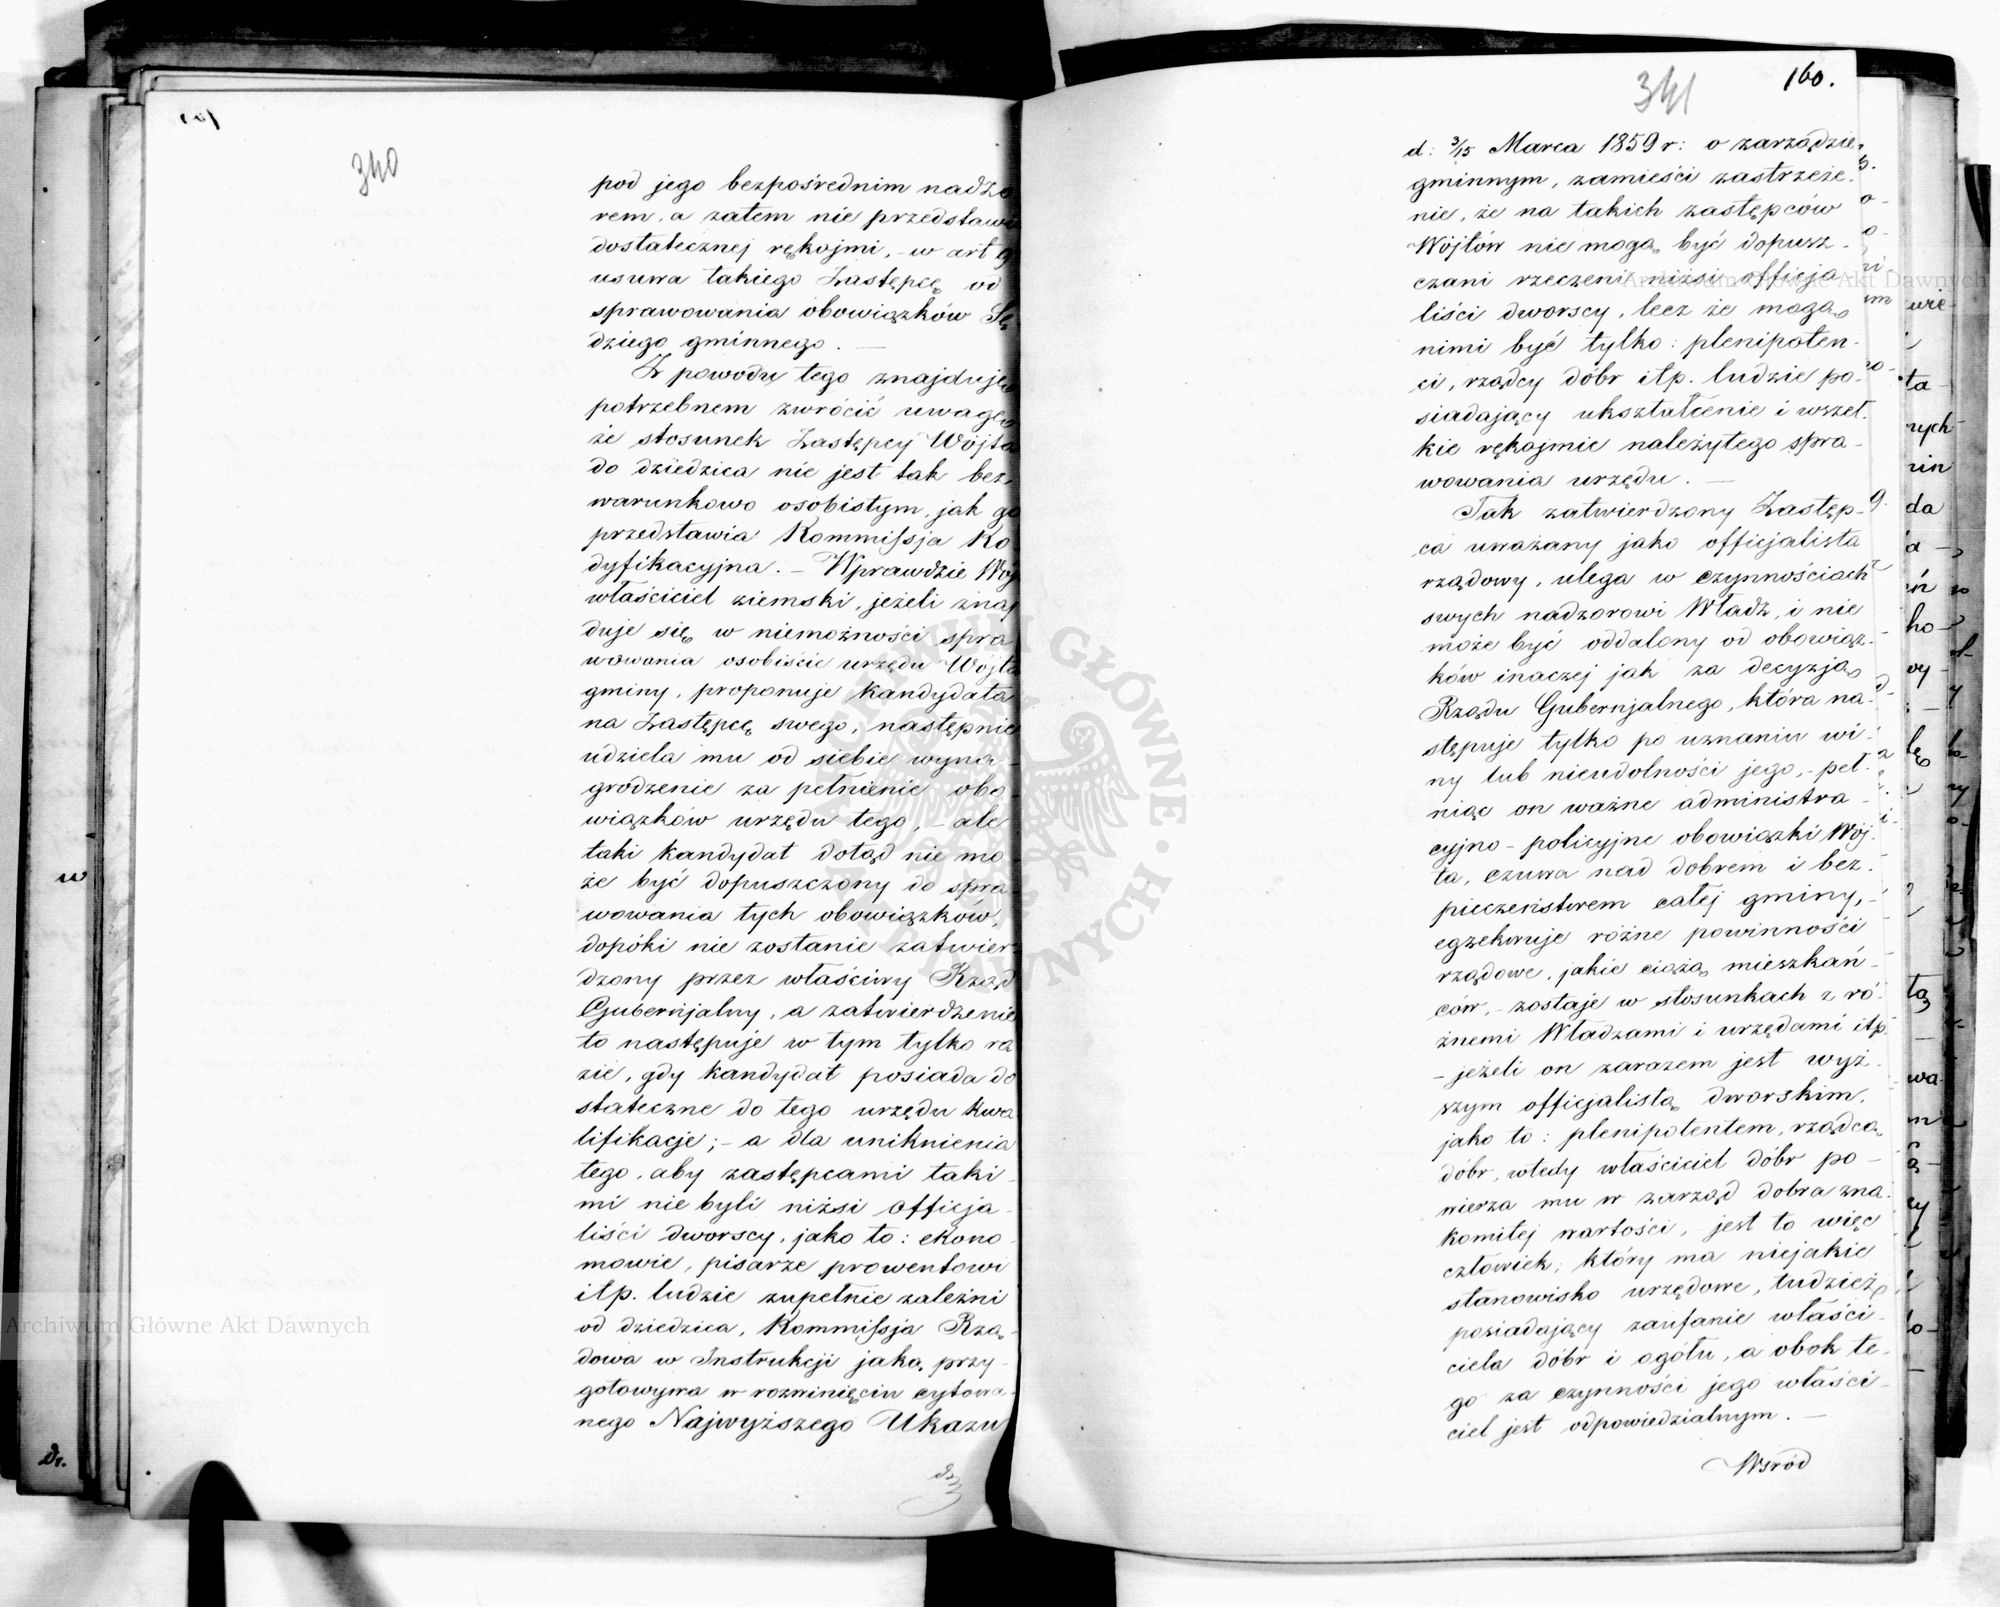 340
pod jego bezpośrednim nadzo
rem, a zatem nie przedstawi
dostatecznej rękojmi, - w art 9
usuwa takiego Zastępcę od
sprawowania obowiązków Sę
dziego gminnego. —
Z powodu tego znajduję
potrzebnem zwrócić uwagę
że stosunek Zastępcy Wójta
do dziedzica nie jest tak bez
warunkowo osobistym, jak go
przedstawia Kommissja Ko
dyfikacyjna. - Wprawdzie Wój
właściciel ziemski, jeżeli znaj
duje się w niemożności spra
wowania osobiście urzędu Wójta
gminy, proponuje kandydata
na Zastępcę swego, następnie
udziela mu od siebie wyna
grodzenie za pełnienie obo
wiązków urzędu tego, - ale
taki kandydat dotąd nie mo
że być dopuszczony do spra
wowania tych obowiązków,
dopóki nie zostanie zatwier
dzony przez właściwy Rząd
Gubernjalny, a zatwierdzenie
to następuje w tym tylko ra
zie, gdy kandydat posiada do
stateczne do tego urzędu kwa
lifikacje; - a dla uniknienia
tego, aby zastępcami taki
mi nie byli niżsi officja
liści dworscy, jako to: ekono
mowie, pisarze prowentowi
itp. ludzie zupełnie zależni
od dziedzica, Kommissja Rzą-
dowa w Instrukcji jaką przy-
gotowywa w rozwinięciu cytowa-
nego Najwyższego Ukazu
341
160.
d: 3/15 Marca 1859 r: o zarządzie
gminnym, zamieści zastrzeże-
nie, że na takich zastępców
Wójtów nie mogą być dopusz-
czani rzeczeni niżsi officja
liści dworscy, lecz że mogą
nimi być tylko: plenipoten-
ci, rządcy dóbr itp. ludzie po-
siadający ukształcenie i wszel-
kie rękojmie należytego spra-
wowania urzędu. —
Tak zatwierdzony Zastęp-
ca uważany jako officjalista
rządowy, ulega w czynnościach
swych nadzorowi Władz, i nie
może być oddalony od obowiąz-
ków inaczej jak za decyzją
Rządu Gubernjalnego, która na-
stępuje tylko po uznaniu wi-
ny lub nieudolności jego, - peł-
niąc on ważne administra-
cyjno - policyjne obowiązki Wój-
ta, czuwa nad dobrem i bez-
pieczeństwem całej gminy, -
egzekwuje różne powinności
rządowe, jakie ciążą mieszkań-
ców, - zostaje w stosunkach z ró-
żnemi Władzami i urzędami itp.
- jeżeli on zarazem jest wyż-
szym officjalistą dworskim,
jako to: plenipotentem, rządcą
dóbr, wtedy właściciel dóbr po-
wierza mu w zarząd dobra zna-
komitej wartości, - jest to więc
człowiek, który ma niejakie
stanowisko urzędowe, tudzież
posiadający zaufanie właści-
ciela dóbr i ogółu, a obok te-
go za czynności jego właści-
ciel jest odpowiedzialnym. —
Wsród
Archiwum Główne Akt Dawnych
Archiwum Główne Akt Dawnych